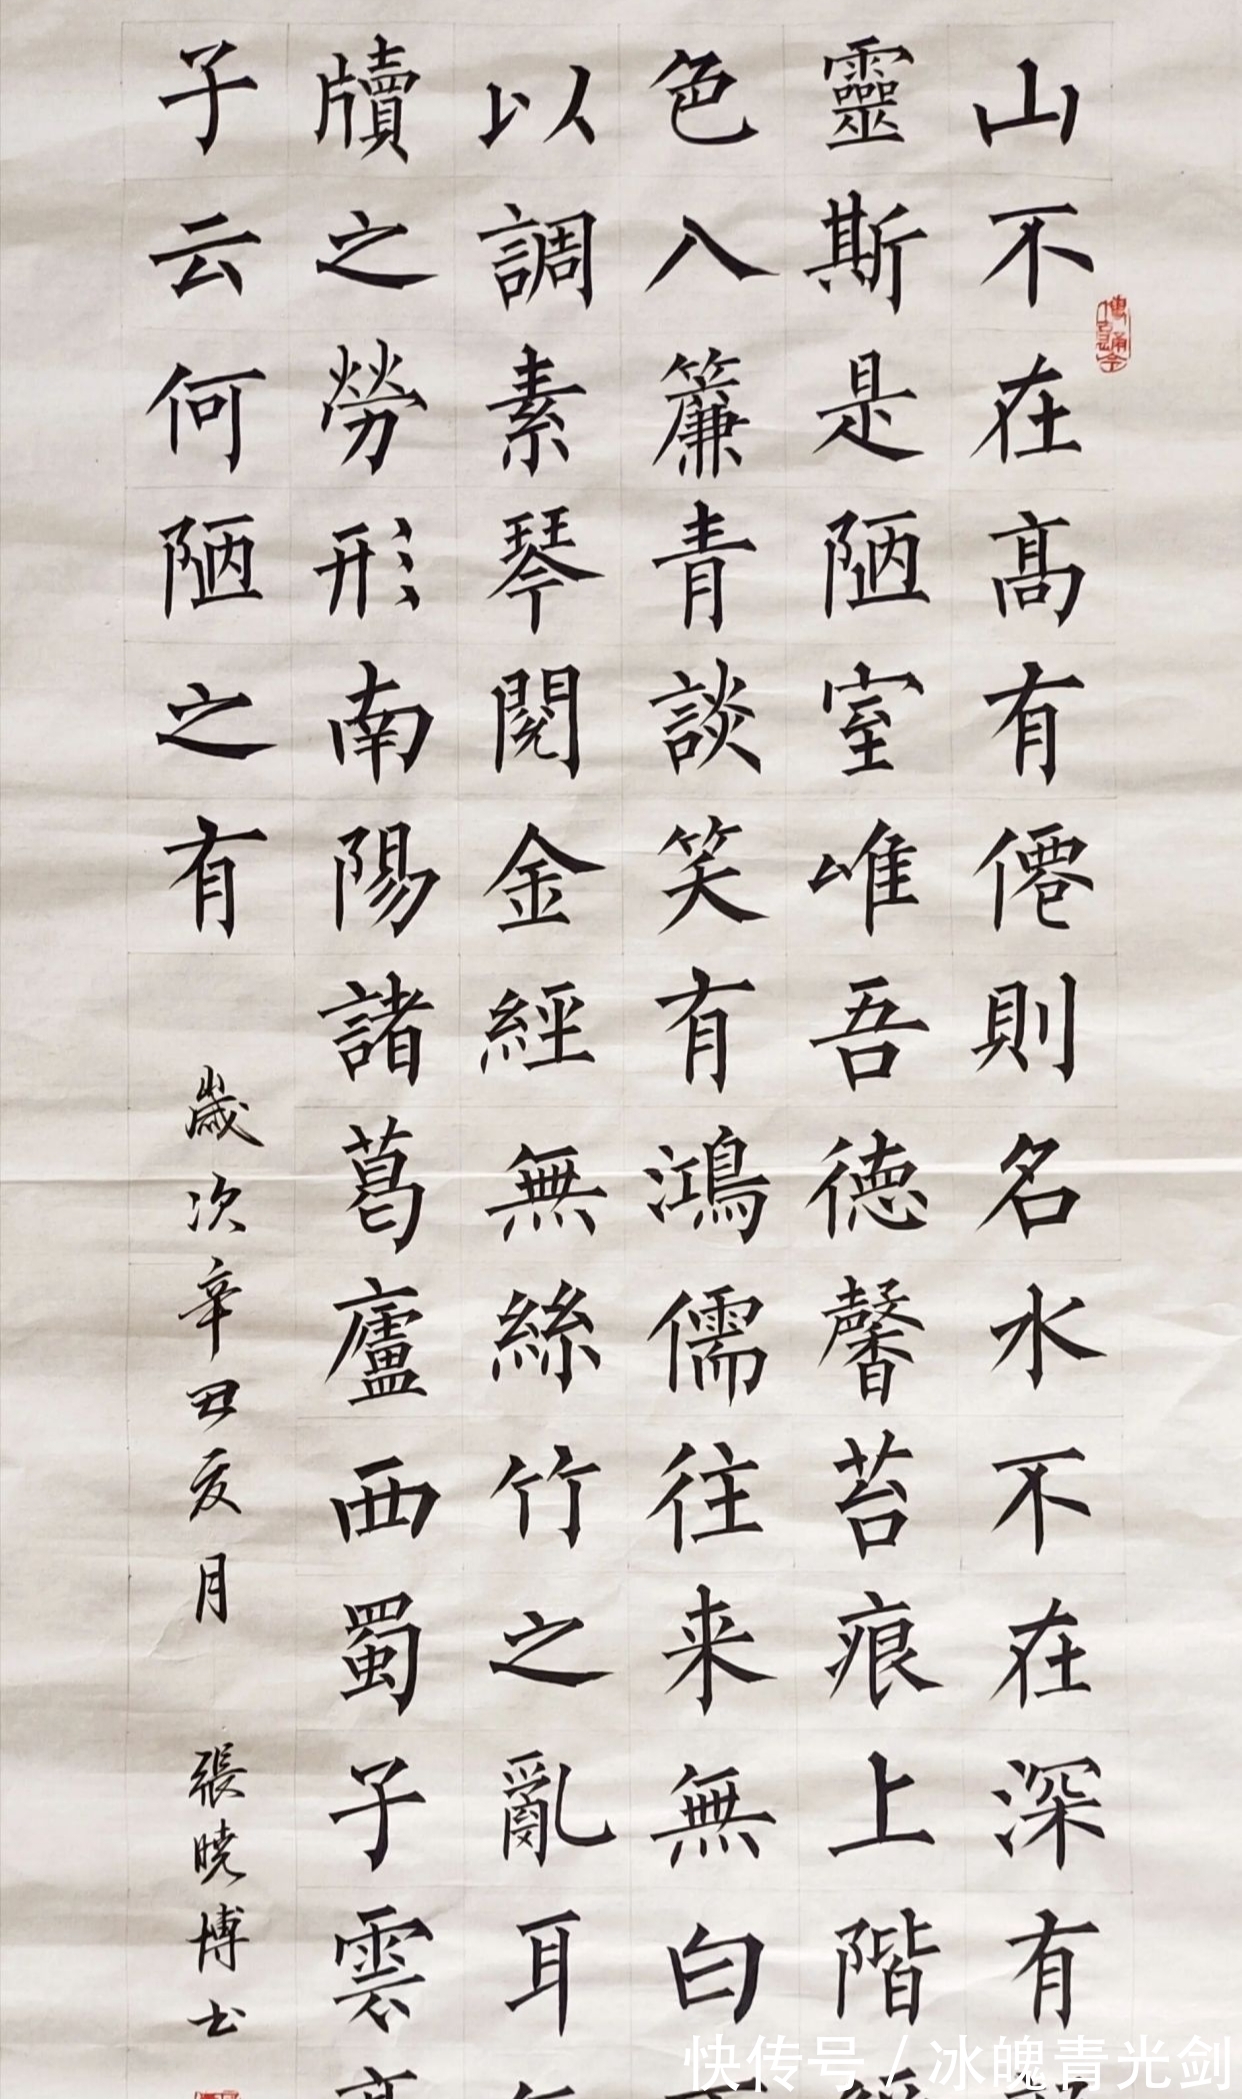 山不在高有僊則名水不在深有
靈斯是陋室唯吾徳馨苔痕上階
色入簾青談笑有鴻儒往来無白
以調素琴閱金經無絲竹之亂耳
牘之勞形南陽諸葛廬西蜀子雲
子云何陋之有
歲次辛丑亥月
張曉博书
快传号/冰魄青光剑